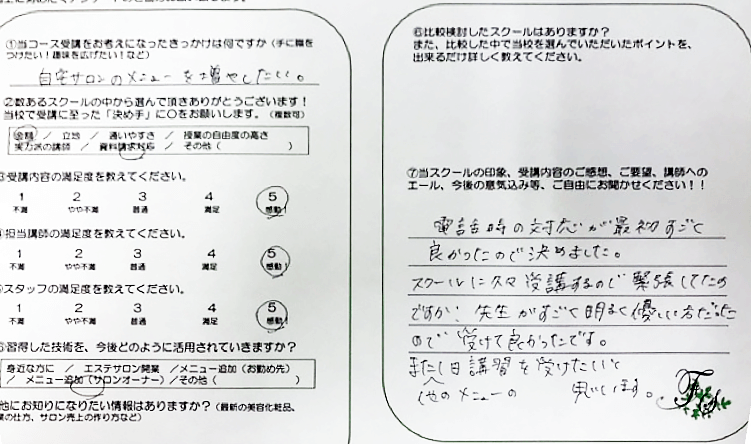 ①当コース受講をお考えになったきっかけは何ですか(手に職を
つけたい!趣味を広げたい!など)
自宅サロンのメニューを増やしたい。
②数あるスクールの中から選んで頂きありがとうございます!
当校で受講に至った「決め手」に〇をお願いします。(複数可)
金額 / 立地 / 通いやすさ / 授業の自由度の高さ
実力派の講師 / 資料請求対応 / その他( )
③受講内容の満足度を教えてください。
1 2 3 4 5
不満 やや不満 普通 満足 感動!
担当講師の満足度を教えてください。
1 2 3 4 5
不満 やや不満 普通 満足 感動!
スタッフの満足度を教えてください。
1 2 3 4 5
不満 やや不満 普通 満足 感動!
習得した技術を、今後どのように活用されていきますか?
身近な方に / エステサロン開業 /メニュー追加(お勤め先)
/ メニュー追加(サロンオーナー)/その他( )
他にお知りになりたい情報はありますか?(最新の美容化粧品、
の仕方、サロン売上の作り方など)
⑥比較検討したスクールはありますか?
また、比較した中で当校を選んでいただいたポイントを、
出来るだけ詳しく教えてください。
⑦当スクールの印象、受講内容のご感想、ご要望、講師への
エール、今後の意気込み等、ご自由にお聞かせください!!
電話時の対応が最初すごく
良かったので決めました。
スクールに久々受講するので緊張してたの
ですが!先生がすごく明るく優しい方だった
ので受けて良かったです。
また日講習を受けたいと
他のメニューの 思います。